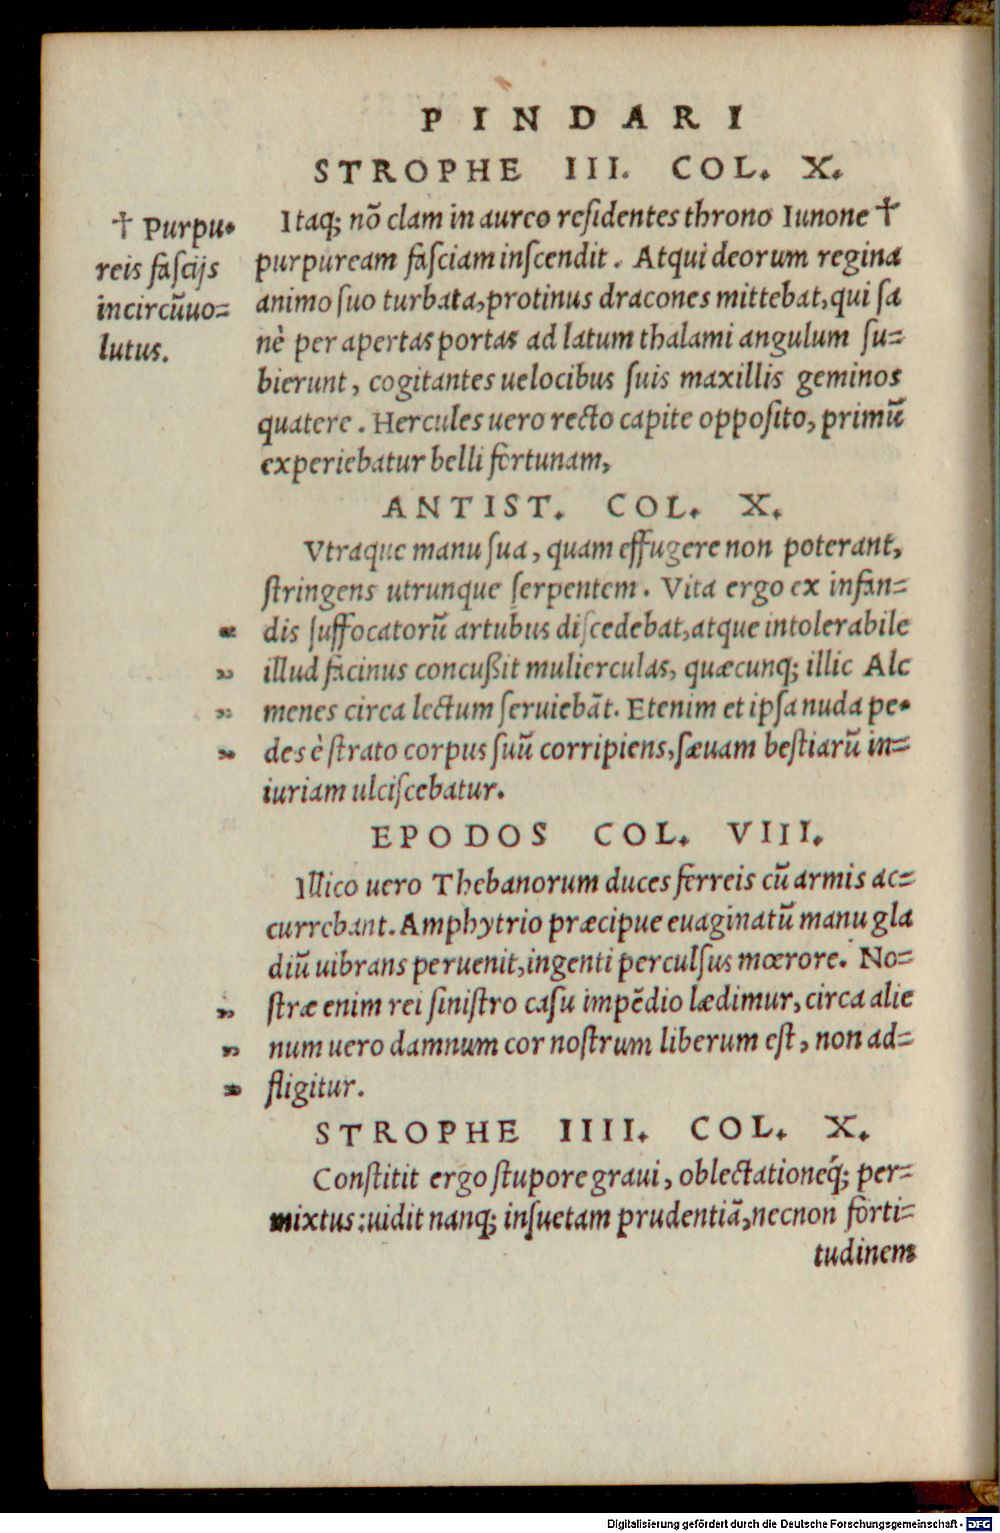 PINDARI
STROPHE III. COL. X.
† Purpu-
reis fascijs
incircũuo=
lutus.
Itaq; nõ clam in aureo residentes throno Iunone †
purpuream fasciam inscendit. Atqui deorum regina
animo suo turbata, protinus dracones mittebat, qui sa
nè per apertas portas ad latum thalami angulum su=
bierunt, cogitantes uelocibus suis maxillis geminos
quatere. Hercules uero recto capite opposito, primũ
experiebatur belli fortunam,
ANTIST. COL. X.
Vtraque manu sua, quam effugere non poterant,
stringens utrunque serpentem. Vita ergo ex infan=
„ dis suffocatorũ artubus discedebat, atque intolerabile
„ illud facinus concußit mulierculas, quæcunq; illic Alc
„ menes circa lectum seruiebãt. Etenim et ipsa nuda pe-
„ des è strato corpus suũ corripiens, sæuam bestiarũ in=
iuriam ulciscebatur.
EPODOS COL. VIII.
Illico uero Thebanorum duces ferreis cũ armis ac=
currebant. Amphytrio præcipue euaginatũ manu gla
diũ uibrans peruenit, ingenti perculsus mœrore. No=
„ stræ enim rei sinistro casu impẽdio lædimur, circa alie
„ num uero damnum cor nostrum liberum est, non ad=
„ fligitur.
STROPHE IIII. COL. X.
Constitit ergo stupore graui, oblectationeq́; per=
mixtus: uidit nanq; insuetam prudentiã, necnon forti=
tudinem
Digitalisierung gefördert durch die Deutsche Forschungsgemeinschaft - DFG